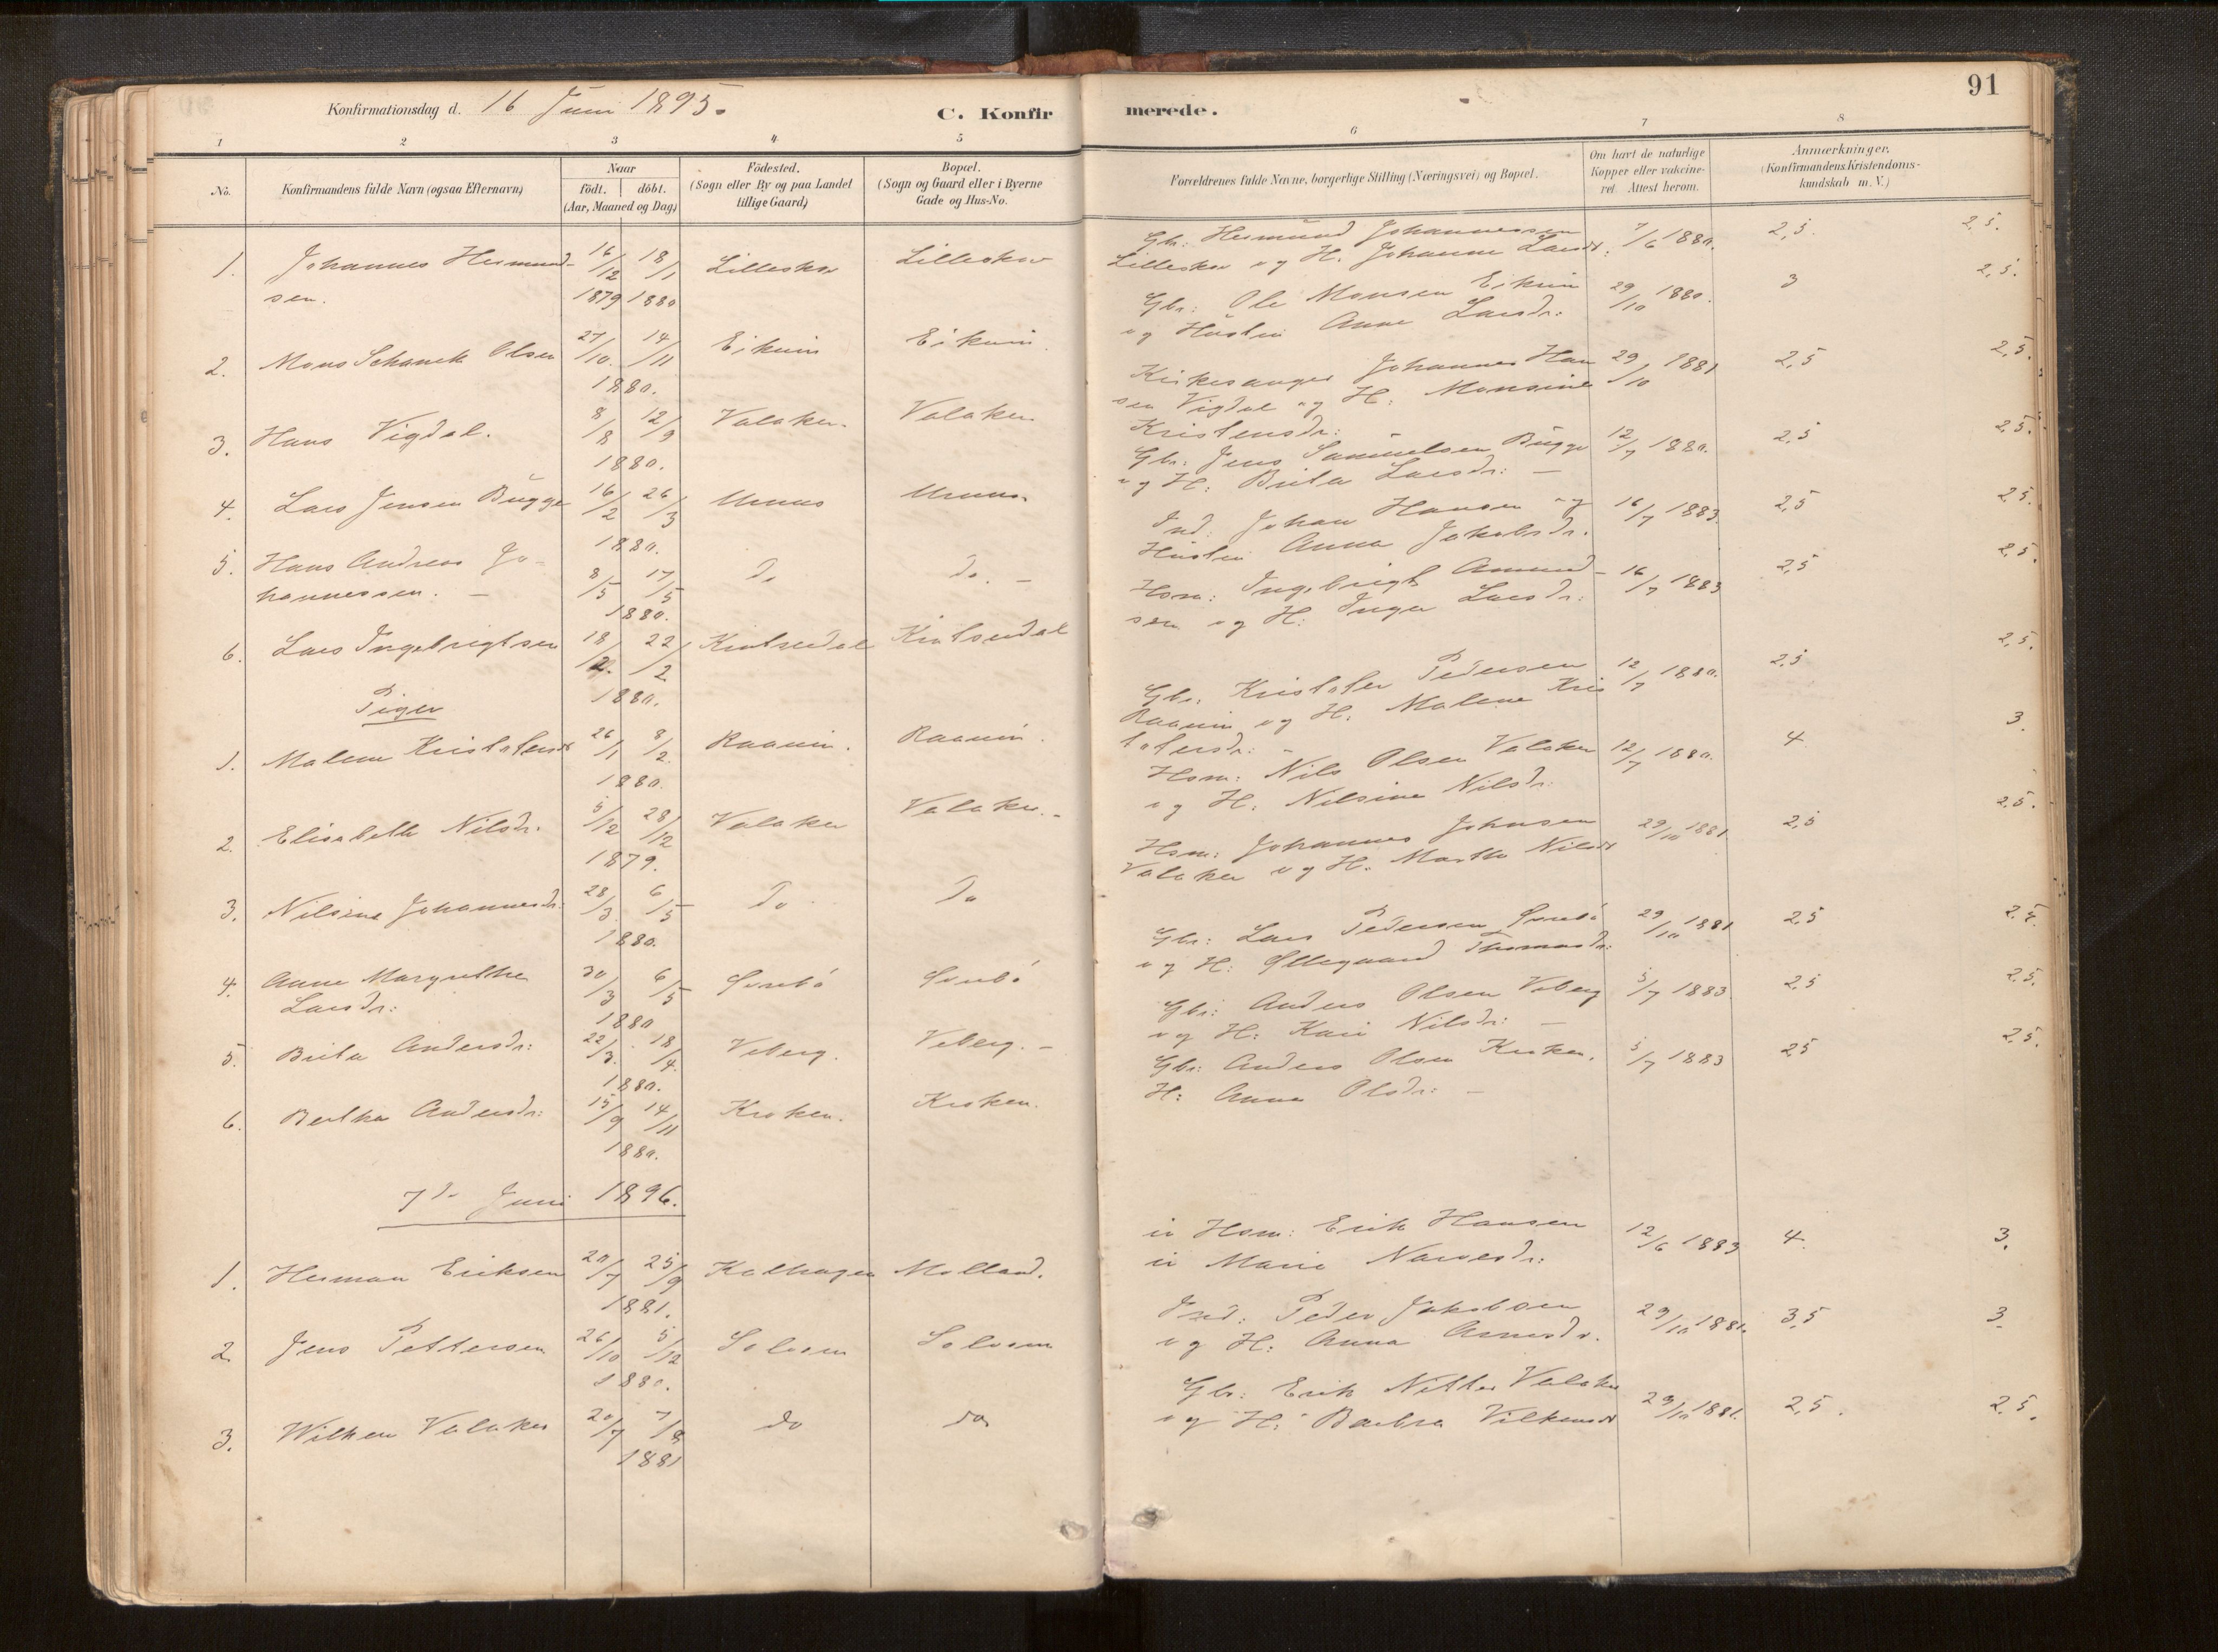 91
Konfirmationsdag d. 16 Juni 1895.
C. Konfir
merede.
1 2 3 4 5
6 7 8
No.
Konfirmandens fulde Navn (ogsaa Efternavn)
Naar
födt. döbt.
(Aar, Maaned og Dag)
Födested.
(Sogn eller By og paa Landet
tillige Gaard)
Bopæl.
(Sogn og Gaard eller i Byerne
Gade og Hus-No.
Forældrenes fulde Navne, borgerlige Stilling (Næringsvei) og Bopæl.
Om havt de naturlige
Kopper eller vakcine-
ret. Attest herom.
Anmærkninger.
(Konfirmandens Kristendoms-
kundskab m. V.)
1. Johannes Hermund- 16/12 18/1 Lilleskar Lilleskar
sen. 1879 1880
Gbr: Hermund Johannessen 7/6 1880. 2,5. 2,5.
Lilleskar og H. Johanne Larsdr:
2. Mons Schanck Olsen 27/10. 14/11 Eikum Eikum.
1880.
Gbr: Ole Monsen Eikum 29/10 1880. 3 2,5.
og Hustru Anne Larsdr:
3. Hans Vigdal. 8/8 12/9 Valaker. Valaker
1880.
Kirkesanger Johannes Han 29/10 1881 2,5 2,5.
sen Vigdal og H: Monsine
Kristensdr:
4. Lars Jensen Bugge 16/2 26/3 Urnes Urnes
1880.
Gbr: Jens Samuelsen Bugge 12/7 1880. 2,5 2,5.
og H: Brita Larsdr: –
5. Hans Andreas Jo- 8/5 17/5 do do. –
hannessen. – 1880.
Ind: Johan Hansen og 16/7 1883. 2,5 2,5.
Hustru Anna Jakobsdr.
6. Lars Ingebrigtsen 18/2. 22/2 Kinsedal Kinsedal
1880.
Hsm: Ingebrigt Amund- 16/7 1883 2,5 2,5.
sen og H: Inger Larsdr:
Piger
1. Malene Kristofersdr 26/1 8/2. Raaum. Raaum.
1880.
Gbr: Kristofer Pedersen 12/7 1880. 2,5 2,5.
Raaum og H: Malene Kris
tofersdr: –
2. Elisabeth Nilsdr. 5/12 28/12 Valaker Valaker. –
1879.
Hsm: Nils Olsen Valaker 12/7 1880. 4 3.
og H: Nilsine Nilsdr:
3. Nilsine Johannesdr: 28/3. 6/5 do do
1880.
Hsm: Johannes Johnsen 29/10 1881 2,5 2,5.
Valaker og H. Martha Nilsdr
4. Anne Margrethe 30/3 6/5
Larsdr: 1880
Gbr: Lars Pedersen 29/10 1881 2,5 2,5.
og H: Øllegaard Thomasdr:
5. Brita Andersdr: 22/3. 18/4. Veberg. Veberg. –
1880.
Gbr: Anders Olsen Veberg 5/7 1883. 2,5 2,5.
og H: Kari Nilsdr: –
6. Berthe Andersdr: 15/9 14/11 Kroken. Kroken.
1880.
Gbr: Anders Olsen Kroken. 5/7 1883 25 2,5.
H: Anna Olsdr: –
7de Juni 1896.
1. Herman Eriksen 20/7 25/9 Kalhagen Molland.
1881.
Hsm: Erik Hansen 12/6 1883 4. 3.
Marie
2. Jens Pettersen 26/10 5/12 Solvorn Solvorn
1880.
Ind: Peder Jakobsen 29/10 1881. 3,5 3.
og H: Anna Arnesdr.
3. Wilhem Valaker 20/7 7/8 do do
1881
Gbr: Erik Nitter Valaker 29/10 1881. 2,5. 2,5.
og H: Barbra Vilhemsdr